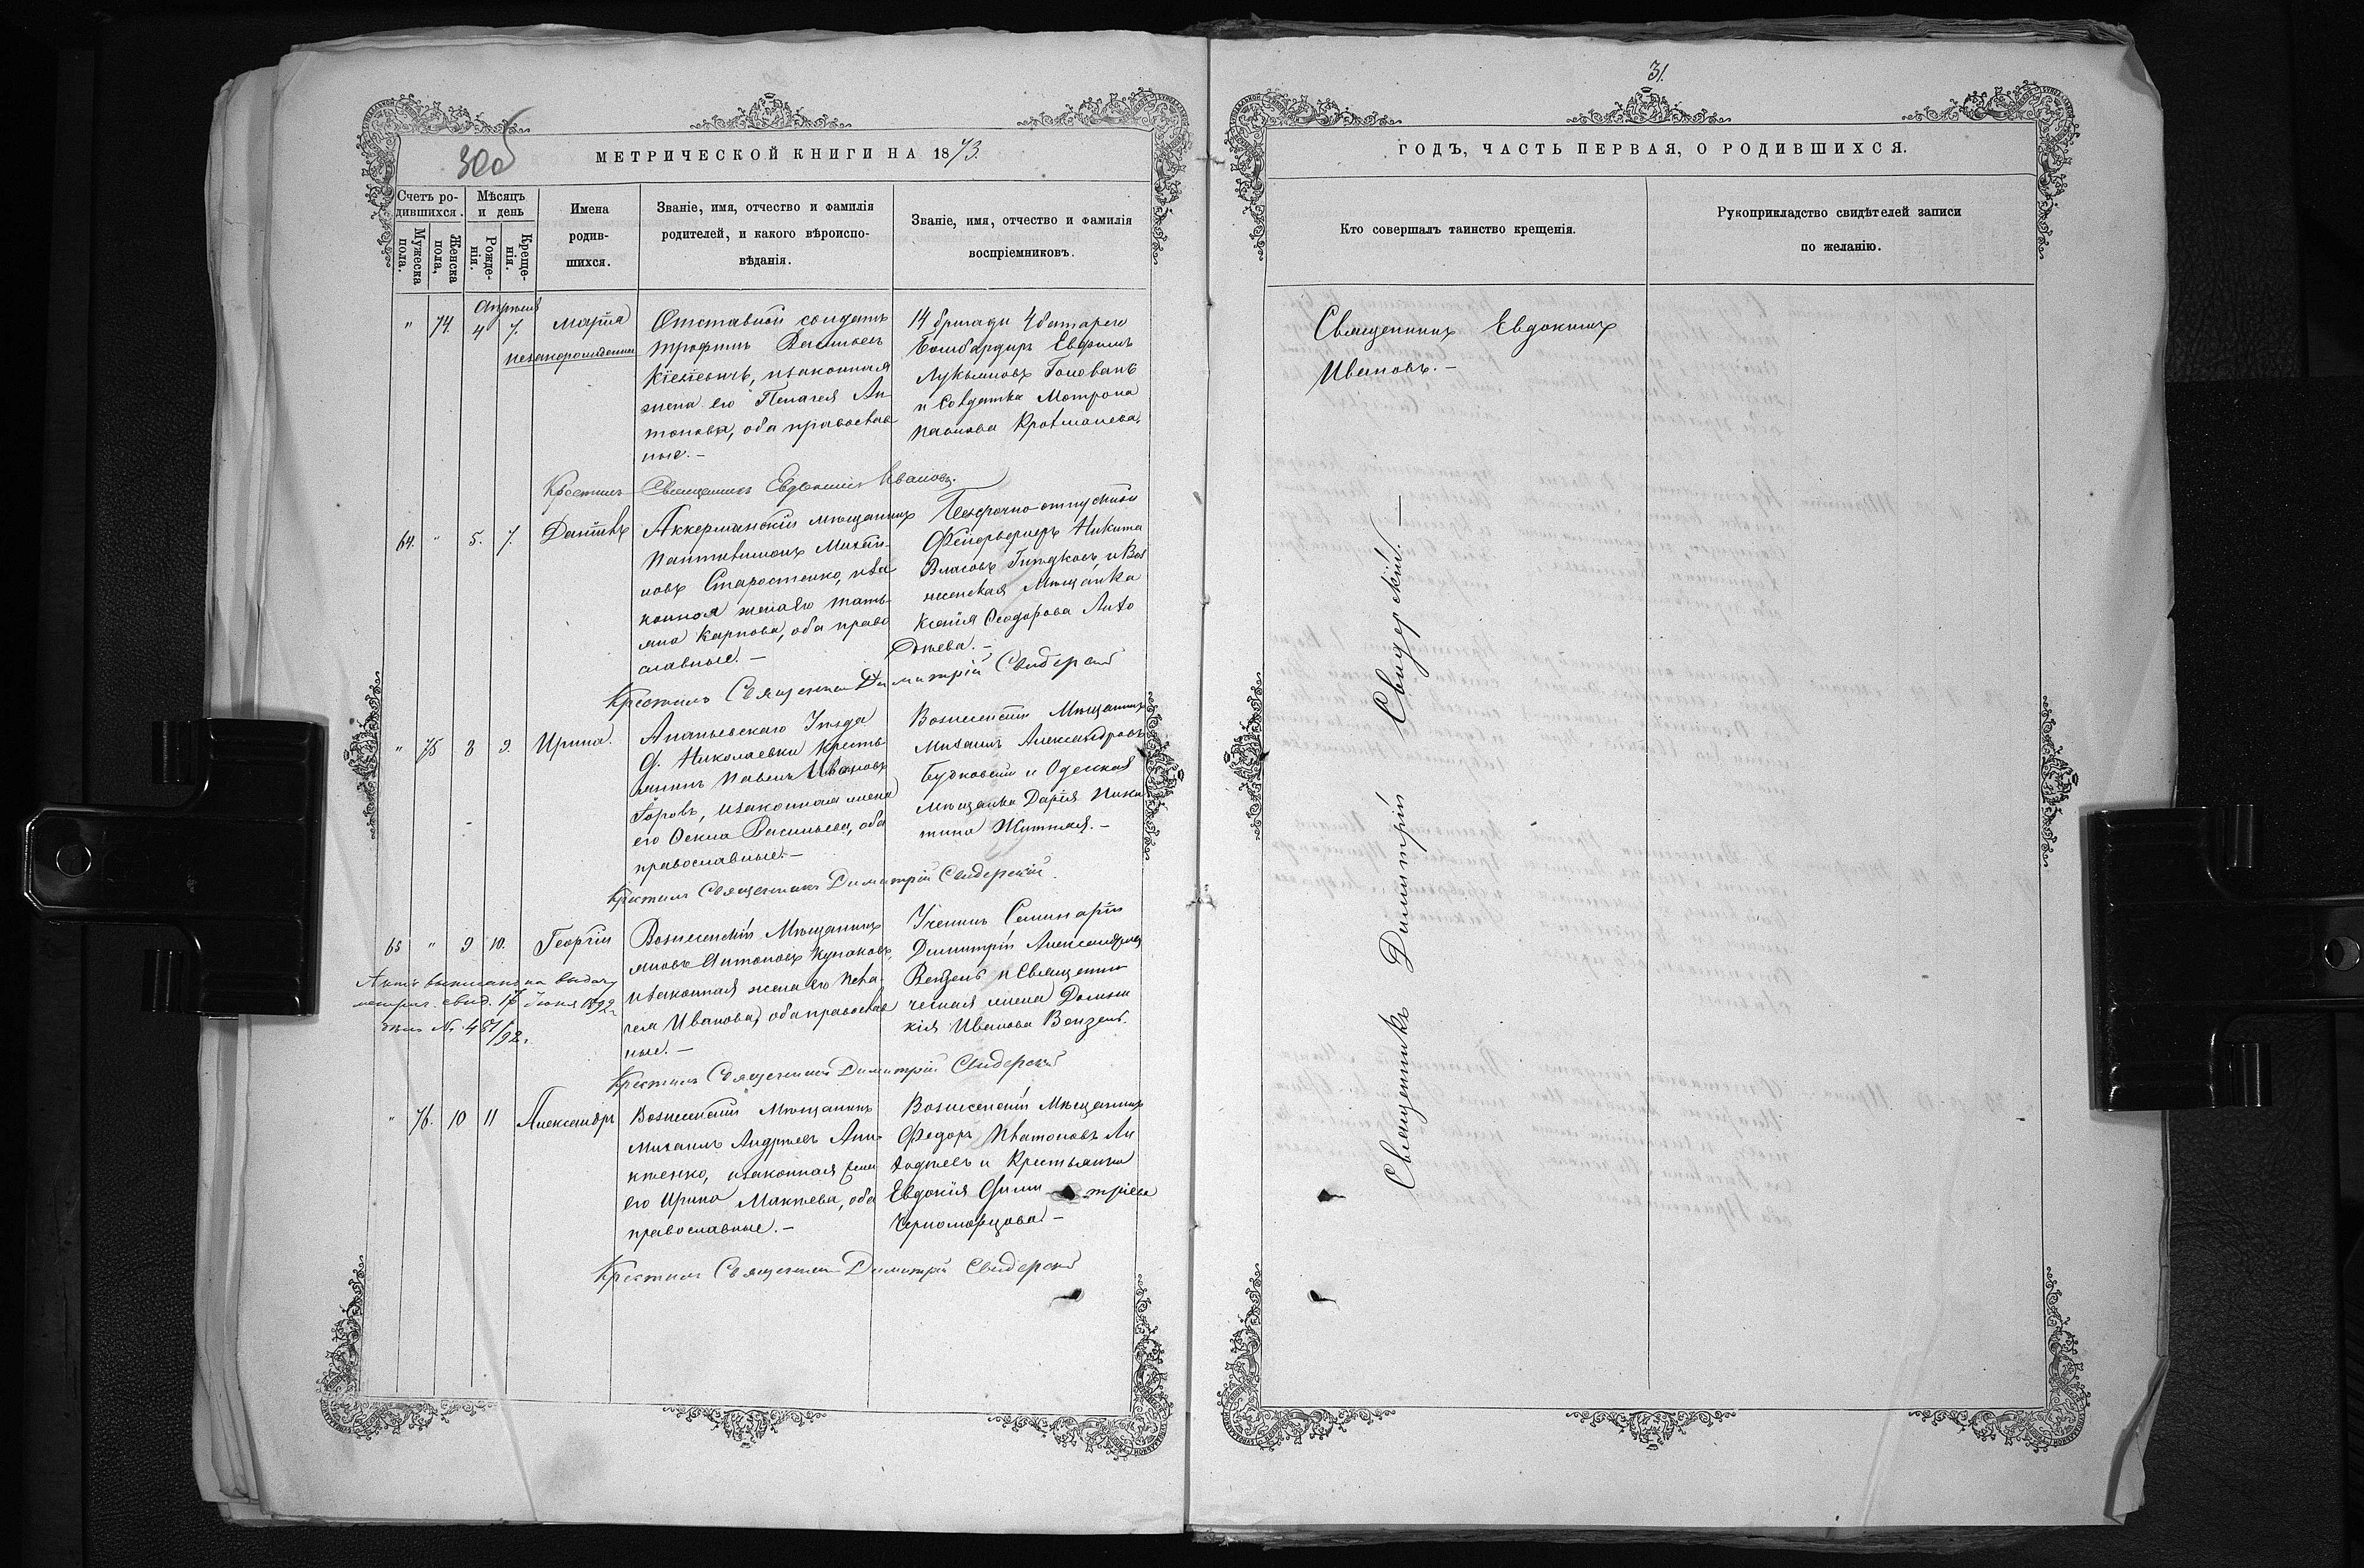 МЕТРИЧЕСКОЙ КНИГИ НА 1873.
Счетъ ро-
дившихся.
Мужеска
пола.
Женска
пола,
Мѣсяцъ
и день
Рожде-
нія.
Креще-
нія.
Имена
родив-
шихся.
Званіе, имя, отчество и фамилія
родителей, и какого вѣроиспо-
вѣданія.
Званіе, имя, отчество и фамилія
воспріемниковъ.
Апрѣля
" 74. 4 7. Марѳа
Отставной солдатъ
Трофимъ Васильевъ
изаконная
жена его Пелагея Ан
тонова, оба православ
ные.-
14 бригады 4 батареи
Бомбардиръ Евфимъ
Лукьяновъ Голованъ
и Солдатка Мотрона
Павлова
Крестилъ Священникъ Евдокимъ Ивановъ.
64. " 5. 7. Даніилъ
Аккерманскій мѣщанинъ
Пантелимонъ Михаи-
ловъ Старостенко, иза
конная жена его Тать-
яна Карпова, оба право
славные.-
Безсрочно-отпускной
Фейерверкеръ Никита
Власовъ и Воз
несенская Мѣщанка
Ксенія Ѳеодорова Лихо
дѣева.-
Крестилъ Священникъ Димитрій Свидерскій
" 75 8 9. Ирина.
Ананьевскаго Уѣзда
д. Николаевки Кресть-
янинъ Павелъ Ивановъ
изаконная жена
его Васильева, оба
православные.-
Вознесенскій Мѣщанинъ
Михаилъ Александровъ
и Одесская
Мѣщанка Дарія Ники
тина
Крестилъ Священникъ Димитрій Свидерскій.
65 " 9 10. Георгій
Вознесенскій Мѣщанинъ
Антоновъ
изаконная жена его Пела
гея Иванова, оба православ
ные.-
Ученикъ Семинаріи
Димитрій Александровъ
Вензель и Священни
ческая жена Домни
кія Иванова Вензель.
Актъ выписанъ на выдачу
метрич. свид. 17 Іюня 1892 г.
№ 481/92.
Крестилъ Священникъ Димитрій Свидерскій
" 76. 10 11 Александръ
Вознесенскій Мѣщанинъ
Михаилъ Андреевъ Ани-
кѣенко, изаконная жена
его Ирина Макѣева, оба
православные.-
Вознесенскій Мѣщанинъ
Федоръ Платоновъ Ли
ходѣевъ и Крестьянка
Евдокія
Черноморцова.-
Крестилъ Священникъ Димитрій Свидерскій
31.
ГОДЪ, ЧАСТЬ ПЕРВАЯ, О РОДИВШИХСЯ.
Кто совершалъ таинство крещенія.
Рукоприкладство свидѣтелей записи
по желанію.
Священникъ Евдокимъ
Ивановъ.-
Священникъ Димитрій Свидерскій.-